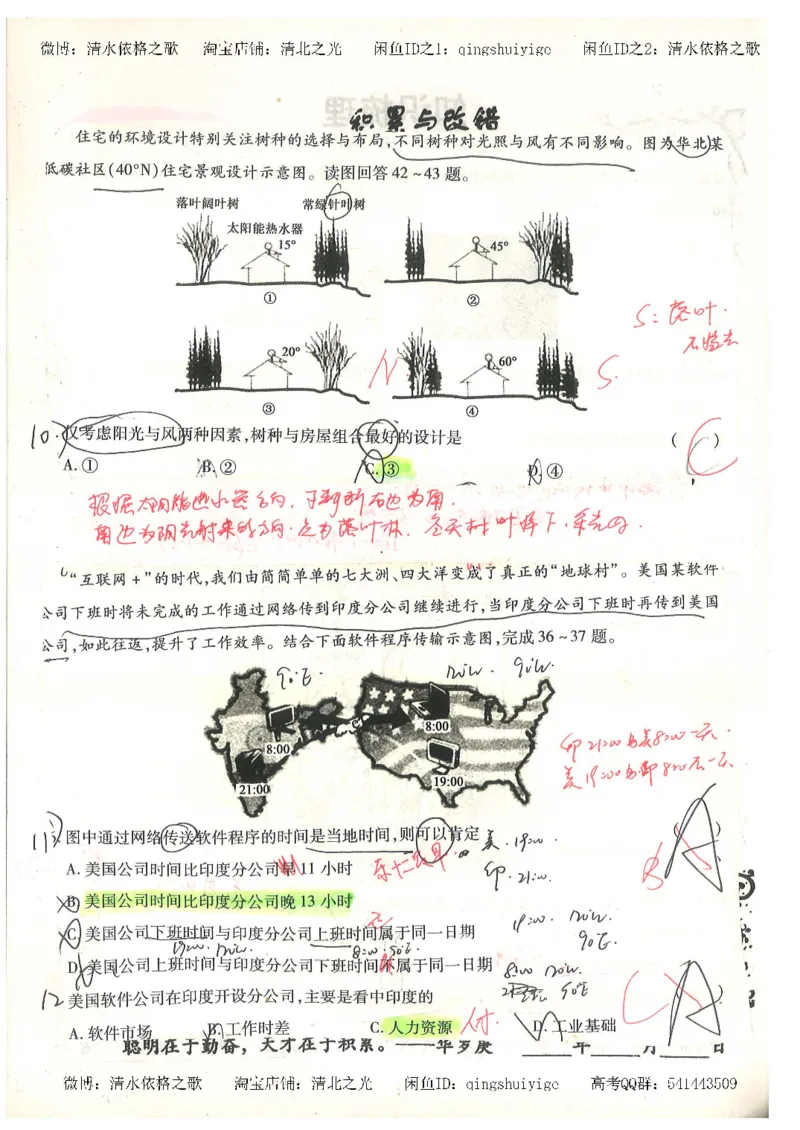 微博：清水依格之歌 淘宝店铺：清北之光 闲鱼ID之1：qingshuiyige 闲鱼ID之2：清水依格之歌
积累与改错
住宅的环境设计特别关注树种的选择与布局,不同树种对光照与风有不同影响。图为华北某
低碳社区(40°N)住宅景观设计示意图。读图回答42~43题。
落叶阔叶树 常绿针叶树
太阳能热水器
15° 45°
① ②
S：落叶.
20° N 60° S.
③ ④
10. 仅考虑阳光与风两种因素,树种与房屋组合最好的设计是 ( C )
A.① B.② C.③ D.④
根据太阳能热水器方向,可判断右边为南.
南边为阳光射来的方向.应为落叶林.冬天树叶掉下.采光好.
“互联网+”的时代,我们由简简单单的七大洲、四大洋变成了真正的“地球村”。美国某软件
公司下班时将未完成的工作通过网络传到印度分公司继续进行,当印度分公司下班时再传到美国
公司,如此往返,提升了工作效率。结合下面软件程序传输示意图,完成36~37题。
90°E. 90°W.
8:00 8:00
21:00 19:00
印21:00与美8:00一天.
美19:00与印8:00不一天.
11. 图中通过网络传送软件程序的时间是当地时间,则可以肯定 美.19:00. ( A )
A.美国公司时间比印度分公司早11小时 B
印.21:00.
B.美国公司时间比印度分公司晚13小时
C.美国公司下班时间与印度分公司上班时间属于同一日期
90°E.
8:00.90°E.
D.美国公司上班时间与印度分公司下班时间不属于同一日期
90°E
12 美国软件公司在印度开设分公司,主要是看中印度的 C ( A )
A.软件市场 B.工作时差 C.人力资源 D.工业基础
聪明在于勤奋，天才在于积累。——华罗庚 ____年____月____日
微博：清水依格之歌 淘宝店铺：清北之光 闲鱼ID：qingshuiyige 高考QQ群：541443509